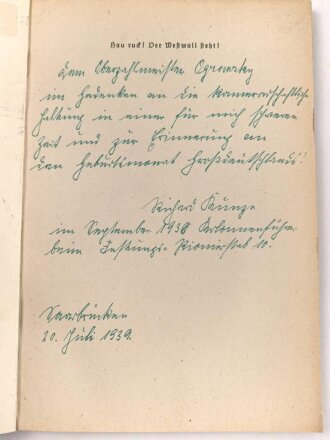 Hau ruck! Der Westwall steht!
Dem Oberzahlmeister
im Gedenken an die kameradschaftliche
Haltung in einer für mich schweren
Zeit und zur Erinnerung an
den Geburtsmonat Großdeutschlands!
Richard Kunze
im September 1938 Kolonnenführer
beim Festungs-Pionierstab 10.
Saarbrücken
20. Juli 1939.